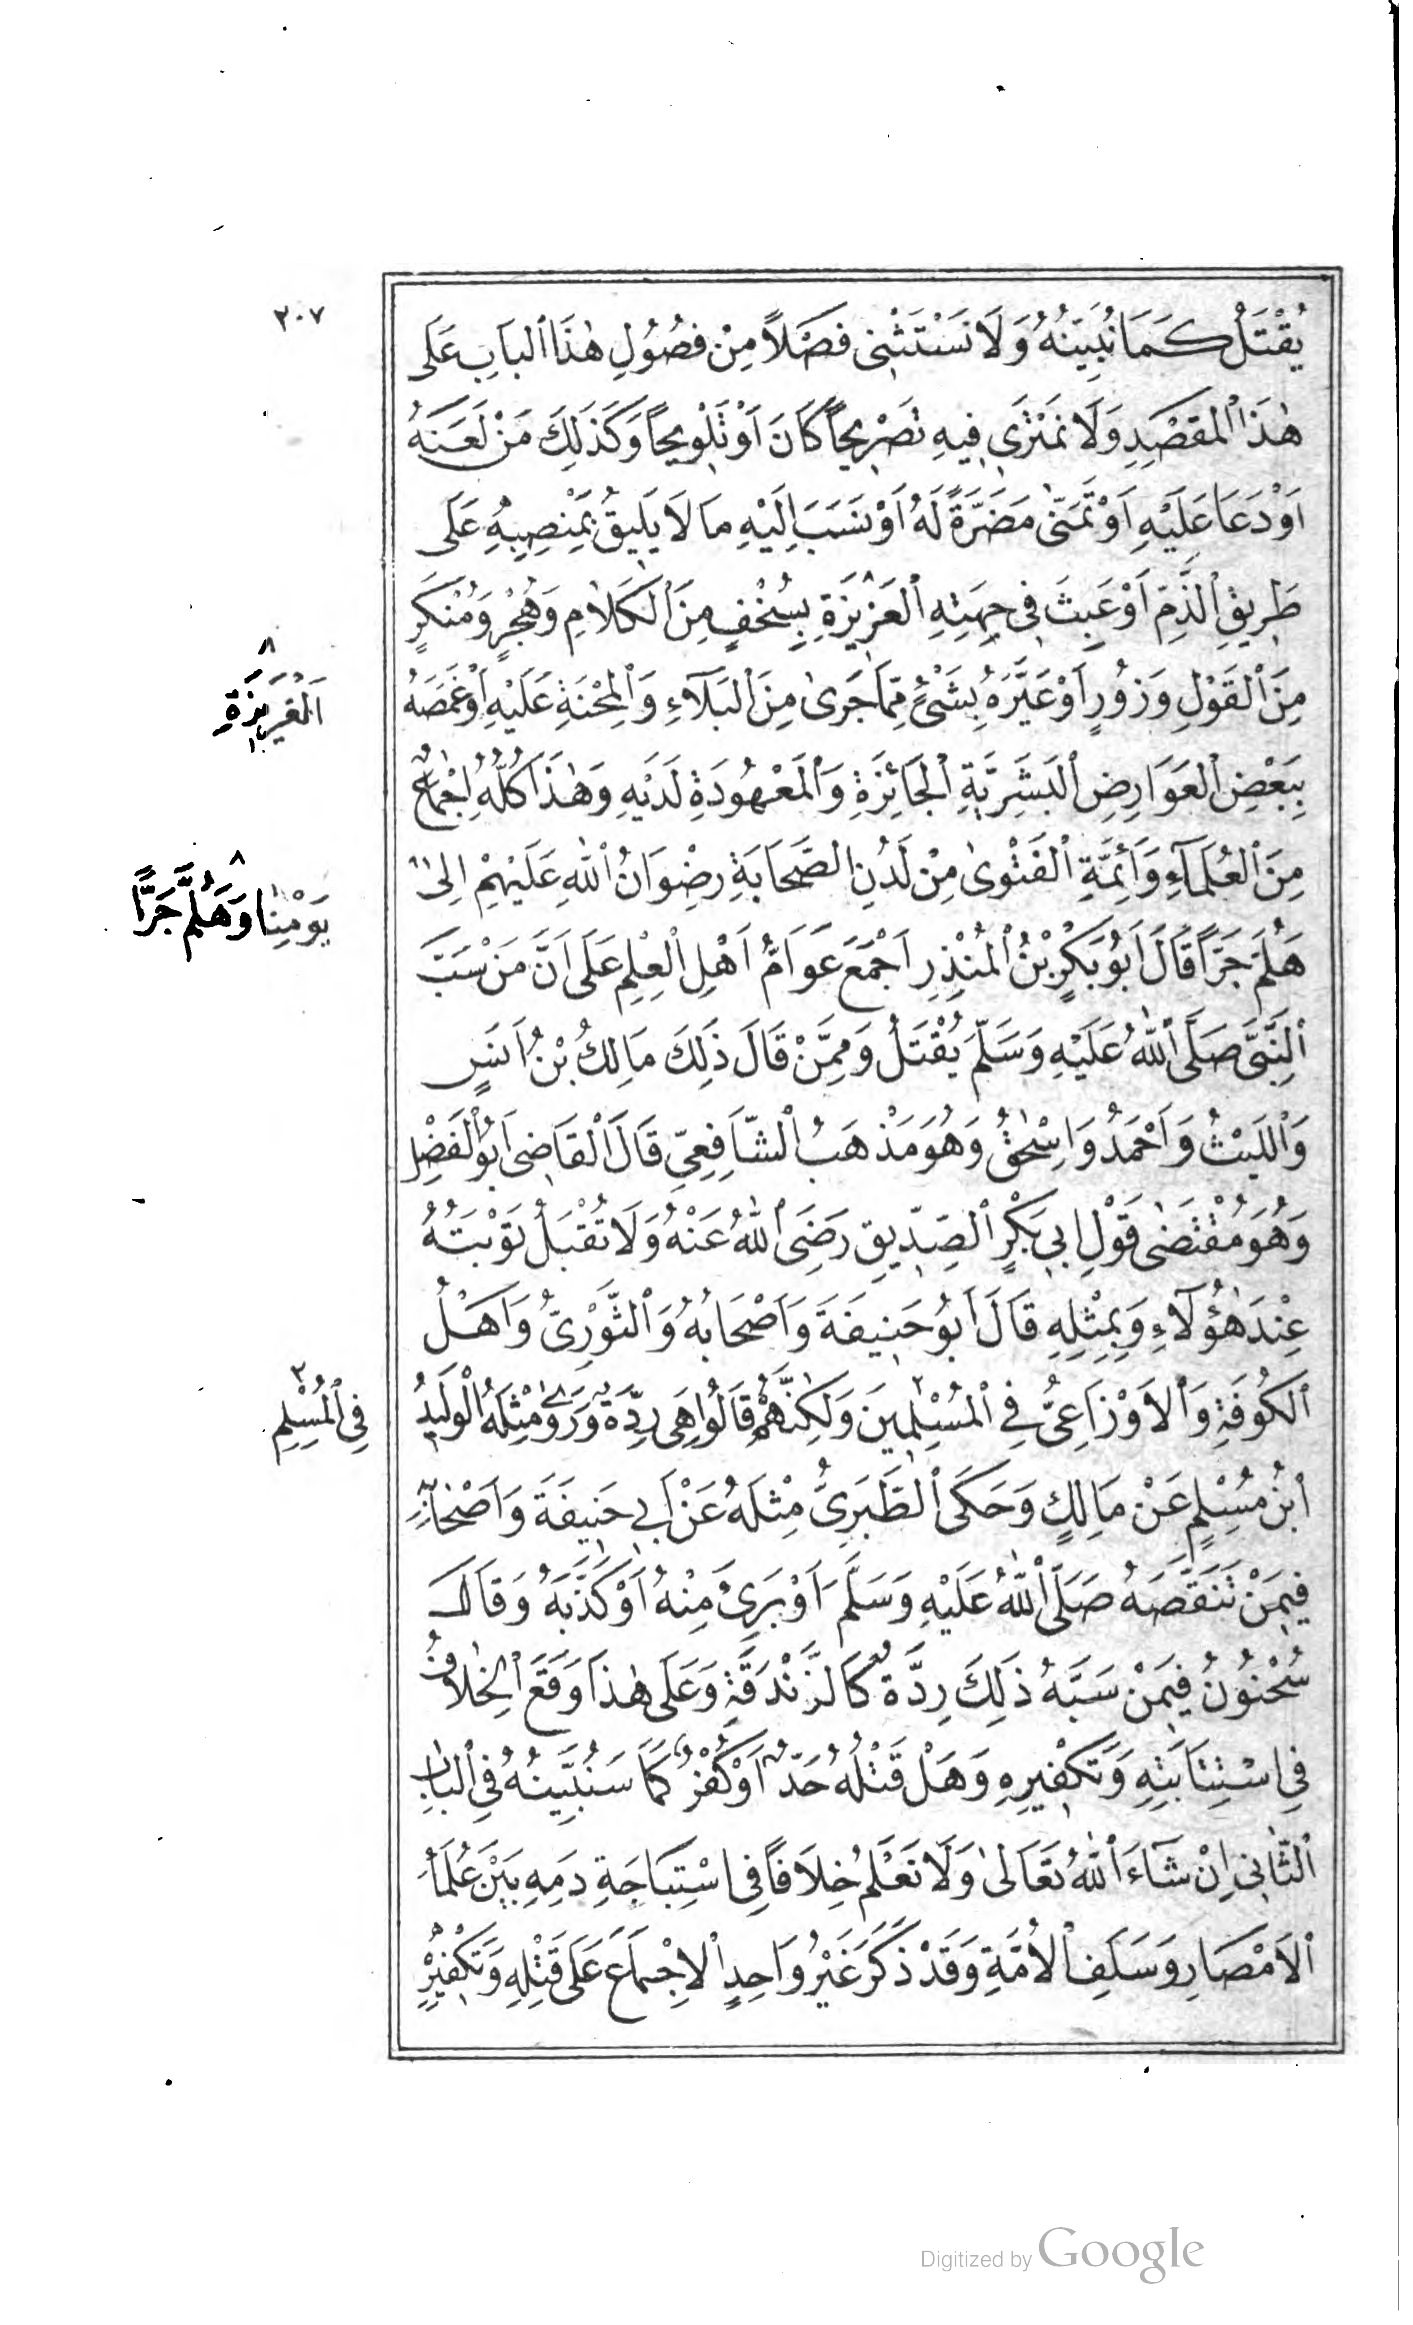 ٢٠٧
يُقْتَلُ كَمَا نُبَيِّنُهُ وَلَا نَسْتَثْنِى فَصْلاً مِنْ فُصُولِ هٰذَا الْبَابِ عَلَى
هٰذَا الْمَقْصَدِ وَلَا نَمْتَرِى فِيهِ تَصْرِيحاً كَانَ اَوْ تَلْوِيحاً وَكَذٰلِكَ مَنْ لَعَنَهُ
اَوْ دَعَا عَلَيْهِ اَوْ تَمَنّٰى مَضَرَّةً لَهُ اَوْ نَسَبَ اِلَيْهِ مَا لَا يَلِيقُ بِمَنْصِبِهِ عَلَى
طَرِيقِ الذَّمِّ اَوْ عَبِثَ فِى جِهَتِهِ الْعَزِيزَةِ ٨ بِسُخْفٍ مِنَ الْكَلَامِ وَهُجْرٍ وَمُنْكَرٍ
مِنَ الْقَوْلِ وَزُورٍ اَوْ عَيَّرَهُ بِشَىْءٍ مِمَّا جَرٰى مِنَ الْبَلَاءِ وَالْمِحْنَةِ عَلَيْهِ اَوْ غَمَصَهُ
٨
الْغَرِيزَةِ
بِبَعْضِ الْعَوَارِضِ الْبَشَرِيَّةِ الْجَائِزَةِ وَالْمَعْهُودَةِ لَدَيْهِ وَهٰذَا كُلُّهُ اِجْمَاعٌ
مِنَ الْعُلَمَاءِ وَاَئِمَّةِ الْفَتْوٰى مِنْ لَدُنِ الصَّحَابَةِ رِضْوَانُ اللّٰهِ عَلَيْهِمْ اِلٰى ٨
٨
يَوْمِنَا وَهَلُمَّ جَرًّا
هَلُمَّ جَرّاً قَالَ اَبُو بَكْرِ بْنُ الْمُنْذِرِ اَجْمَعَ عَوَامُّ اَهْلِ الْعِلْمِ عَلَى اَنَّ مَنْ سَبَّ
النَّبِىَّ صَلَّى اللّٰهُ عَلَيْهِ وَسَلَّمَ يُقْتَلُ وَمِمَّنْ قَالَ ذٰلِكَ مَالِكُ بْنُ اَنَسٍ
وَاللَّيْثُ وَاَحْمَدُ وَاِسْحٰقُ وَهُوَ مَذْهَبُ الشَّافِعِىِّ قَالَ الْقَاضِى اَبُو الْفَضْلِ
وَهُوَ مُقْتَضٰى قَوْلِ اَبِى بَكْرٍ الصِّدِّيقِ رَضِىَ اللّٰهُ عَنْهُ وَلَا تُقْبَلُ تَوْبَتُهُ
عِنْدَ هٰؤُلَاءِ وَبِمِثْلِهِ قَالَ اَبُو حَنِيفَةَ وَاَصْحَابُهُ وَالثَّوْرِىُّ وَاَهْلُ
الْكُوفَةِ وَالْاَوْزَاعِىُّ فِى الْمُسْلِمِينَ ٢ وَلٰكِنَّهُمْ قَالُوا هِىَ رِدَّةٌ وَرَوٰى مِثْلَهُ الْوَلِيدُ
٢
فِى الْمُسْلِمِ
ابْنُ مُسْلِمٍ عَنْ مَالِكٍ وَحَكَى الطَّبَرِىُّ مِثْلَهُ عَنْ اَبِى حَنِيفَةَ وَاَصْحَابِهِ
فِيمَنْ تَنَقَّصَهُ صَلَّى اللّٰهُ عَلَيْهِ وَسَلَّمَ اَوْ بَرِىَٔ مِنْهُ اَوْ كَذَّبَهُ وَقَالَ
سُحْنُونُ فِيمَنْ سَبَّهُ ذٰلِكَ رِدَّةٌ كَالزَّنْدَقَةِ وَعَلَى هٰذَا وَقَعَ الْخِلَافُ
فِى اسْتِتَابَتِهِ وَتَكْفِيرِهِ وَهَلْ قَتْلُهُ حَدٌّ اَوْ كُفْرٌ كَمَا سَنُبَيِّنُهُ فِى الْبَابِ
الثَّانِى اِنْ شَاءَ اللّٰهُ تَعَالٰى وَلَا نَعْلَمُ خِلَافاً فِى اسْتِبَاحَةِ دَمِهِ بَيْنَ عُلَمَاءِ
الْاَمْصَارِ وَسَلَفِ الْاُمَّةِ وَقَدْ ذَكَرَ غَيْرُ وَاحِدٍ الْاِجْمَاعَ عَلَى قَتْلِهِ وَتَكْفِيرِهِ
Digitized by Google